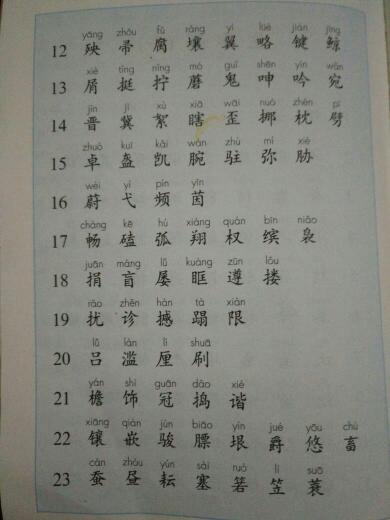 yāng zhǒu fǔ rǎng yì lüè jiàn jīng
12 殃 帚 腐 壤 翼 略 键 鲸
xiè tǐng nǐng mó guǐ shēn yín wǎn
13 屑 挺 拧 蘑 鬼 呻 吟 宛
jìn jì xù xiā wāi nuó zhěn pī
14 晋 冀 絮 瞎 歪 挪 枕 劈
zhuó kuī kǎi wàn zhù mí xié
15 卓 盔 凯 腕 驻 弥 胁
wèi yì pín yīn
16 蔚 弋 频 茵
chàng kē hú xiáng quán bīn niǎo
17 畅 磕 弧 翔 权 缤 袅
juān máng lǚ kuàng zūn lǒu
18 捐 盲 屡 眶 遵 搂
rǎo zhěn hàn tà xiàn
19 扰 诊 撼 蹋 限
lǚ làn lí shuā
20 吕 滥 厘 刷
yán shì guān dǎo xié
21 檐 饰 冠 捣 谐
xiāng qiàn jùn biāo yín jué yōu chù
22 镶 嵌 骏 膘 垠 爵 悠 畜
cán zhòu yún sài ruò lì suō
23 蚕 昼 耘 塞 箬 笠 蓑